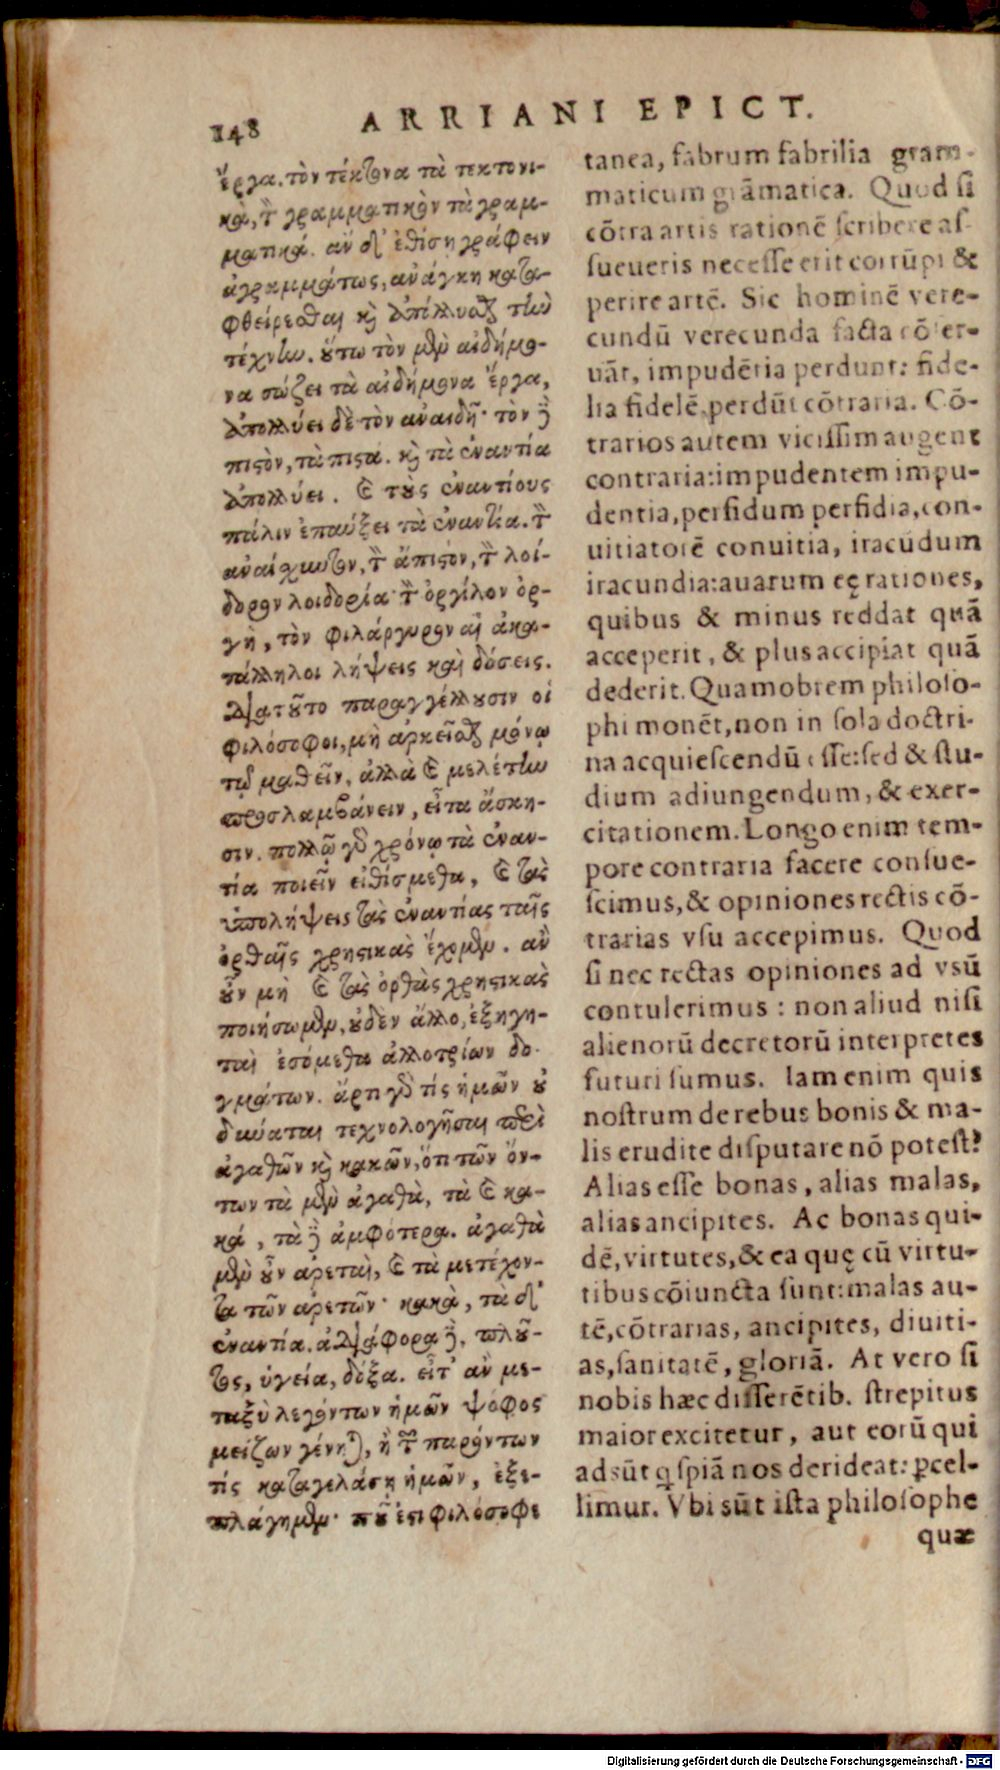 148 ARRIANI EPICT.
ἔργα. τὸν τέκτονα τὰ τεκτονι-
κὰ, τ̀ γραμματικὸν τὰ γραμ-
ματικά. ἂν δ' ἐθίσῃ γράφειν
ἀγραμμάτως, ἀνάγκη κατα-
φθείρεσθαι κ̀ ἀπόλλυσθ τὴν
τέχνην. ὕτω τὸν μὲν αἰδήμο-
να σώζει τὰ αἰδήμονα ἔργα,
ἀπολλύει δὲ τὸν ἀναιδῆ· τὸν ϳ
πιϛὸν, τὰ πιϛά. κ̀ τὰ ἐναντία
ἀπολλύει. ϗ τοὺς ἐναντίους
πάλιν ἐπαύξει τὰ ἐναντία. τ̀
ἀναίσχυντον, τ̀ ἄπιϛον, τ̀ λοί-
δορον λοιδορία· τ̀ ὀργίλον ὀρ-
γὴ, τὸν φιλάργυρον αἱ ἀκα-
τάλληλοι λήψεις καὶ δόσεις.
Διατοῦτο παραγγέλλουσιν οἱ
φιλόσοφοι, μὴ ἀρκεῖσθ μόνῳ
τῷ μαθεῖν, ἀλλὰ ϗ μελέτην
προσλαμβάνειν, εἶτα ἄσκη-
σιν. πολλῷ γὸ χρόνῳ τὰ ἐναν-
τία ποιεῖν εἰθίσμεθα, ϗ τὰς
ὑπολήψεις τὰς ἐναντίας ταῖς
ὀρθαῖς χρηϛικὰς ἔχομεν. ἂν
οὖν μὴ ϗ τὰς ὀρθὰς χρηϛικὰς
ποιήσωμεν, οὐδὲν ἄλλο, ἐξηγη-
ταὶ ἐσόμεθα ἀλλοτρίων δο-
γμάτων. ἄρτι γὸ τίς ἡμῶν οὐ
δύναται τεχνολογῆσαι περὶ
ἀγαθῶν κ̀ κακῶν, ὅτι τῶν ὄν-
των τὰ μὲν ἀγαθὰ, τὰ ϗ κα-
κά, τὰ ϳ ἀμφότερα. ἀγαθὰ
μὲν οὖν ἀρεταὶ, ϗ τὰ μετέχον-
τα τῶν ἀρετῶν· κακὰ, τὰ δ'
ἐναντία. ἀδιάφορα ϳ, πλοῦ-
τος, ὑγεία, δόξα. εἶτ' ἂν με-
ταξὺ λεγόντων ἡμῶν ψόφος
μείζων γένηται, ἢ τ̃ παρόντων
τὶς καταγελάσῃ ἡμῶν, ἐξε-
πλάγημεν· ποῦ ἐϛι φιλόσοφε
tanea, fabrum fabrilia gram-
maticum grāmatica. Quod ſi
cōtra artis rationē ſcribere aſ-
ſueueris neceſſe erit corrūpi &
perire artē. Sic hominē vere-
cundū verecunda facta cōſer-
uāt, impudētia perdunt: fide-
lia fidelē, perdūt cōtraria. Cō-
trarios autem viciſſim augent
contraria: impudentem impu-
dentia, perfidum perfidia, con-
uitiatorē conuitia, iracūdum
iracundia: auarum eę rationes,
quibus & minus reddat quā
acceperit, & plus accipiat quā
dederit. Quamobrem philoſo-
phi monēt, non in ſola doctri-
na acquieſcendū eſſe: ſed & ſtu-
dium adiungendum, & exer-
citationem. Longo enim tem-
pore contraria facere conſue-
ſcimus, & opiniones rectis cō-
trarias vſu accepimus. Quod
ſi nec rectas opiniones ad vsū
contulerimus : non aliud niſi
alienorū decretorū interpretes
futuri ſumus. Iam enim quis
noſtrum de rebus bonis & ma-
lis erudite diſputare nō poteſt?
Alias eſſe bonas, alias malas,
alias ancipites. Ac bonas qui-
dē, virtutes, & ea quę cū virtu-
tibus cōiuncta ſunt: malas au-
tē, cōtrarias, ancipites, diuiti-
as, ſanitatē, gloriā. At vero ſi
nobis hæc diſſerētib. ſtrepitus
maior excitetur, aut eorū qui
adsūt qſpiā nos derideat: ꝑcel-
limur. Vbi sūt iſta philoſophe
quæ
Digitalisierung gefördert durch die Deutsche Forschungsgemeinschaft - DFG